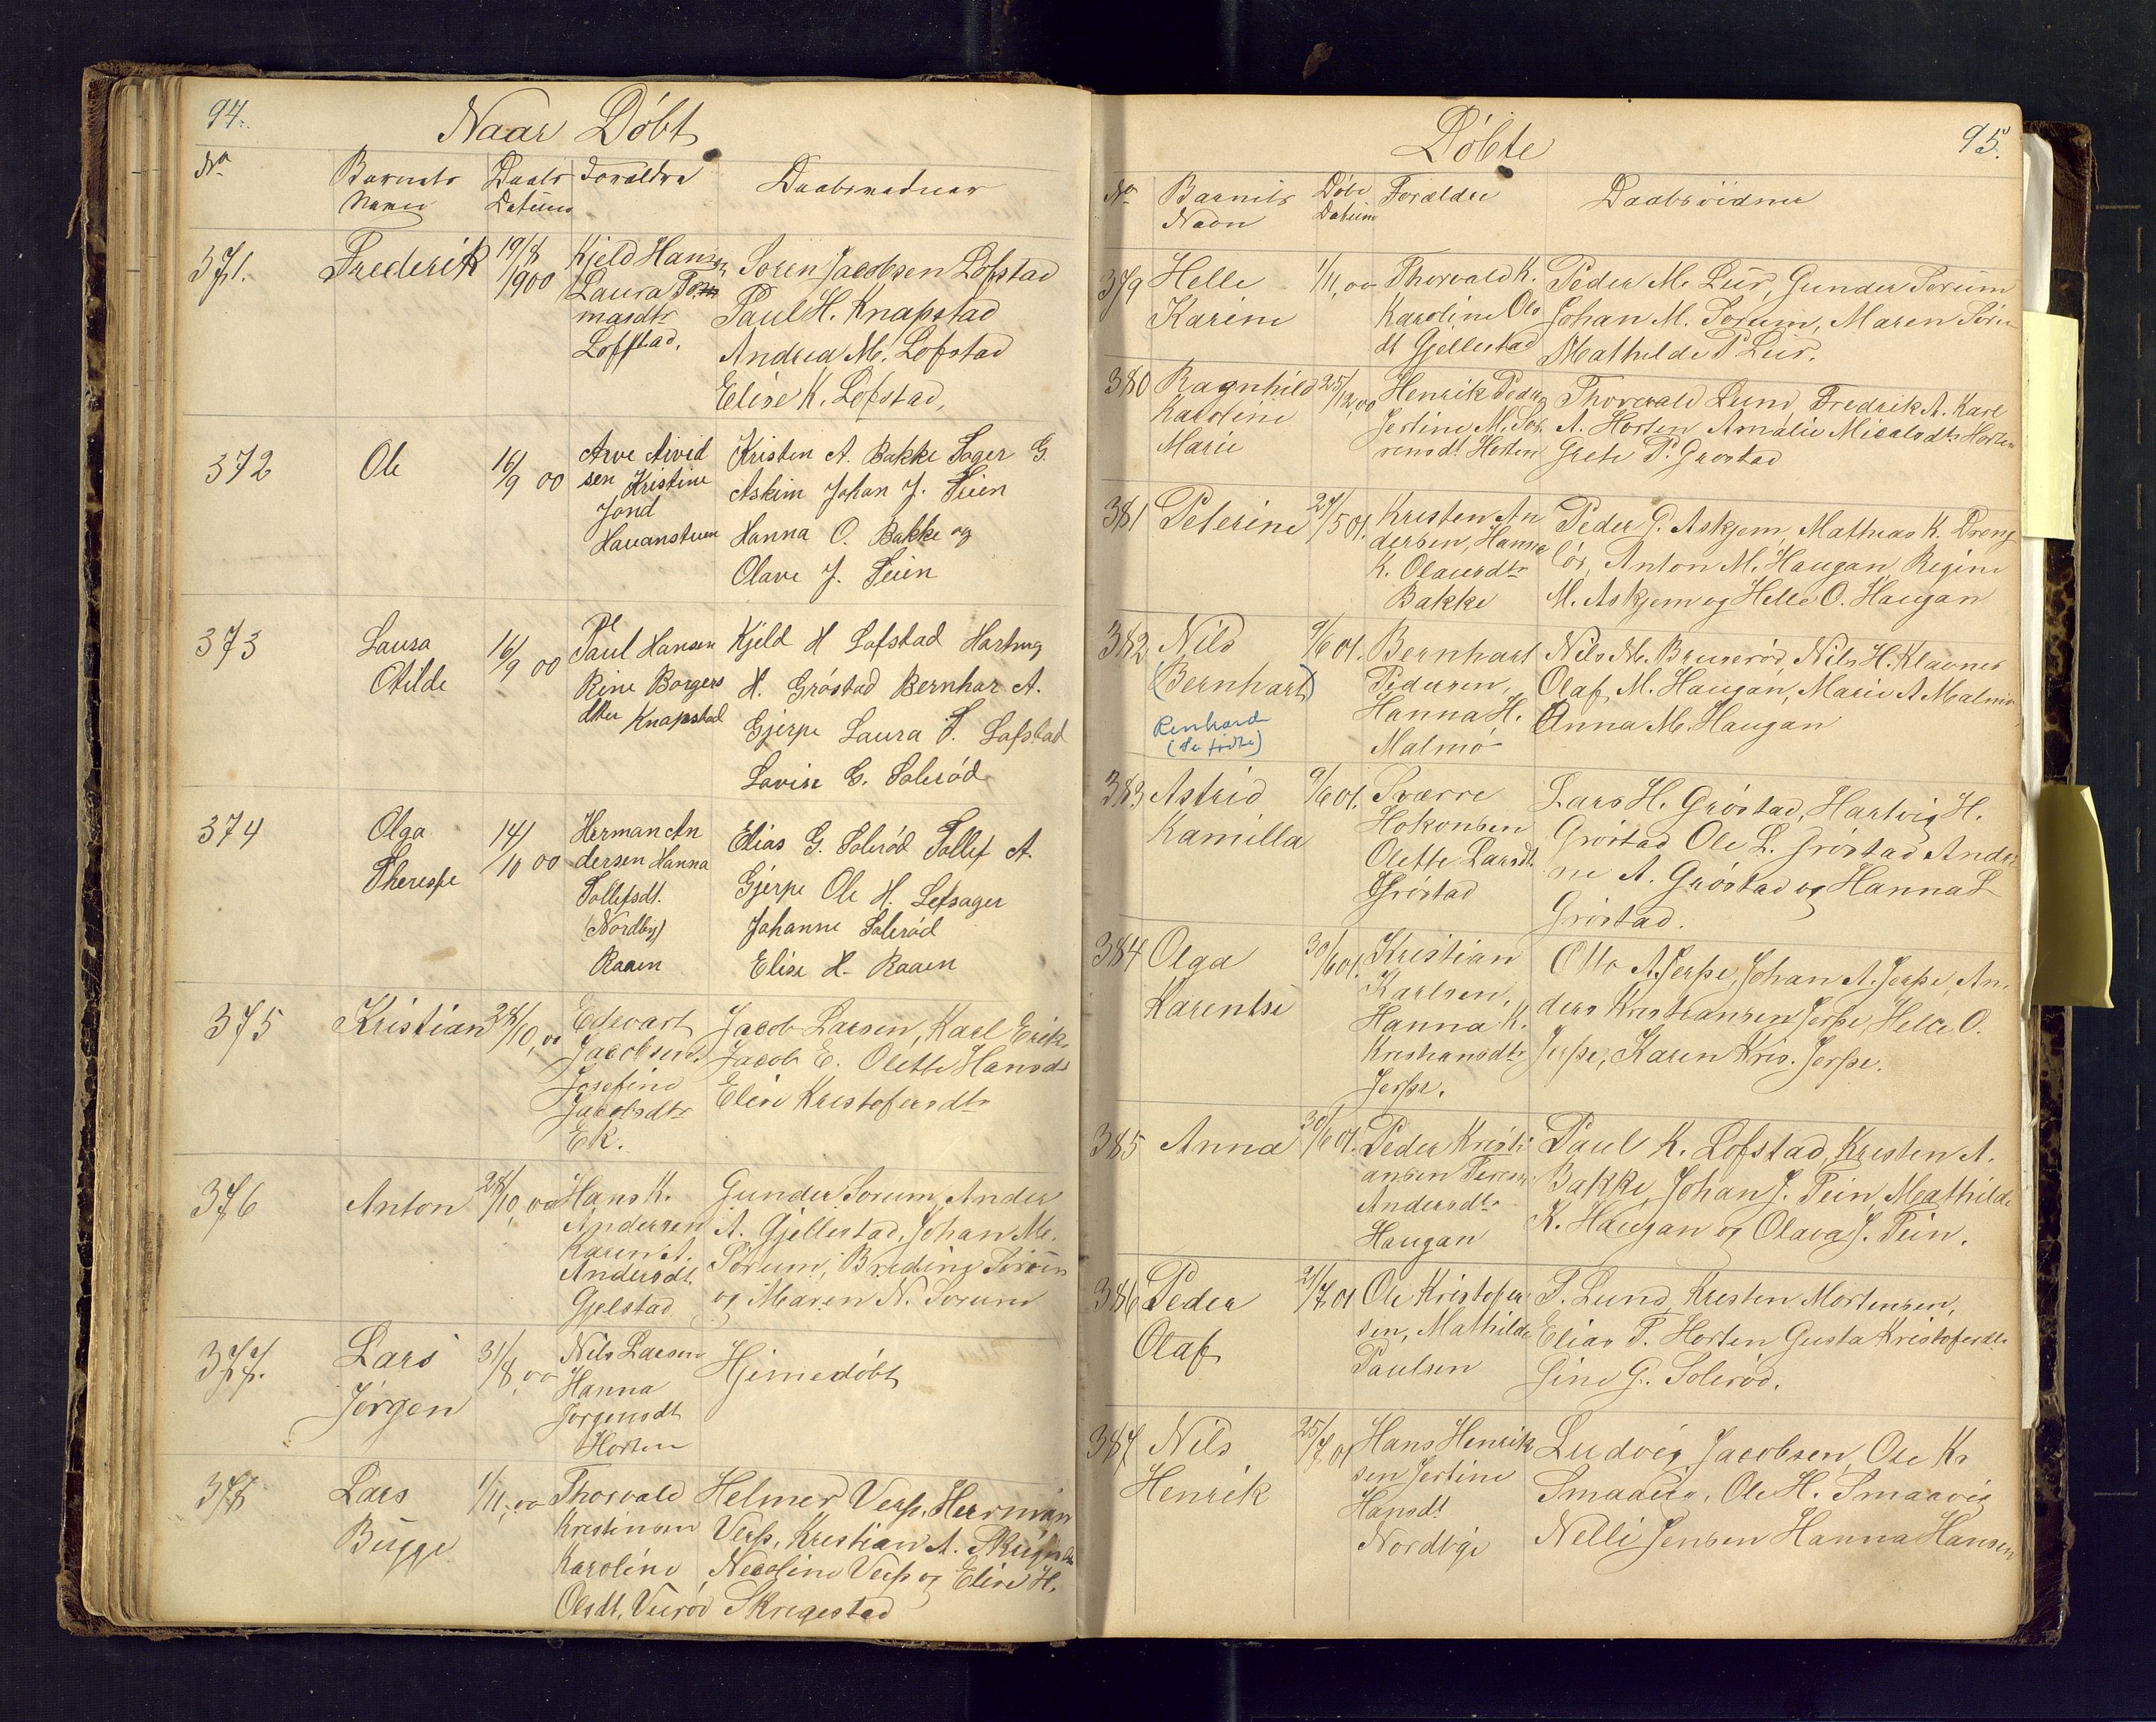 94.
Naar Døbt
No
Barnets
Navn
Daabs
Datum
Forældre
Daabsvidner
371.
Frederik
19/8
1900
Kjeld Hansen
Laura Tom
masdtr
Lofstad.
Soren Jacobsen Lofstad
Paul H. Knapstad
Andrea M. Lofstad
Elise K. Lofstad,
372
Ole
16/9 00
Arve Arvid
sen Kristine
Jond
Kristen A. Bakke Soger G.
Askim Johan J. Teien
Hanna O. Bakke og
Olave J. Teien
373
Laura
Otilde
16/9 00
Paul Hansen
Rine Borgers
dtter Knapstad
Kjeld H Lofstad Hartvig
H. Gróstad Bernhar A.
Gjerpe Laura T. Lofstad
Lovise G. Solerød
374
Olga
Therese
14/10 00
Herman An
dersen Hanna
Tollefsdt.
(Nordby)
Raaen
Elias G. Solerød Tollef A.
Gjerpe Ole H. Lefsager
Johanne Solerød
Elise H. Raaen
375
Kristian
28/10, 00
Edevart
Jacobsen,
Josefine
Jacobsdtr
Ek.
Jacob Larsen, Karl Erik.
Jacob E. Olette Hansdt
Elise Kristofersdtr
376
Anton
28/10, 00
Hans K.
Andersen
Karen A.
Andersdt.
Gjelstad
Gunder Sorum, Ander
A. Gjellestad, Johan M.
Sorum,
og Maren N. Sorum
377.
Lars
Jørgen
31/8, 00
Nils Larsen
Hanna
Jorgensdt
Horten
Hjemedøbt
378
Lars
Bugge
1/11, 00
Thorvald
Kristinsen
Karoline
Olsdt,
Helmer Verp, Herman
Verp, Kristian A.
Nicoline Verp og Elise H.
Skregestad
Døbte
95.
No
Barnets
Navn
Døbe
Datum
Forældre
Daabsvidner
379
Helle
Karine
1/11, 00
Thorvald K.
Karoline Ols
dt Gjellestad
Peder M. Lur, Gunder Sorum
Johan M. Sorum, Maren Sorum
Mathilde P Lur.
380
Ragnhild
Karoline
Marie
25/12, 00
Henrik Peders
Jestine M. Sor
rensdt. Horten
Thorvald Lund, Fredrik A. Karl
A. Horten Amalie Micalsdtr Horten
Grete P. Grostad
381
Peterine
27/5 01.
Kristen An
dersen, Hanna
K. Olausdtr
Bakke
Peder P. Askjem, Mathias K. Dreng
lós, Anton M. Haugan, Regine
M. Askjem og Helle O. Haugan
382
Nils
(Bernhart)
Renhard
(se fødte)
9/6 01.
Bernhart
Pedersen,
Hanna H.
Malmó
Nils M. Bruserød, Nils H. Klavnes
Olaf M. Haugan, Marie A Malmó,
Anna M. Haugan
383
Astrid
Kamilla
9/6 01.
Sverre
Hokonsen
Olette Larsdt.
Gróstad
Lars H. Gróstad, Hartvig H.
Gróstad Ole L. Gróstad Andri
ne A. Gróstad og Hanna L
Gróstad.
384
Olga
Karentse
30/6 01.
Kristian
Karlsen,
Hanna K.
Kristiansdtr
Jerpe.
Otto A. Jerpe, Johan A. Jerpe, An,
ders Kristiansen Jerpe, Helle O.
Jerpe, Karen Kris. Jerpe.
385
Anna
30/6 01.
Peder Kristi
ansen
Andersdtr
Haugan
Paul K. Lofstad, Kristen A.
Bakke, Johan J. Tein, Mathilde
K. Haugan og Olava J. Tein.
386
Peder
Olaf
21/7 01
Ole Kristofer
sen, Mathilde
Paulsen
T. Lund, Kristen Mortensen,
Elias T. Horten Gusta Kristofersdtr
Gine G. Solerød.
387
Nils
Henrik
25/7 01
Hans Henrik
sen Jestine
Hansdt
Nordvigi
Ludvig Jacobsen, Ole Kr
Smaavig, Ole H. Smaavig
Nelli Jensen Hanna Hansen